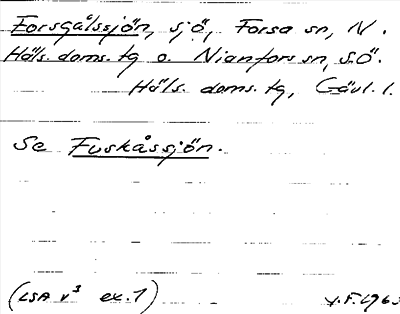 Forsgålssjön, sjö, Forsa sn, N.
Häls. doms. tg o. Nianfors sn, S.Ö.
Häls. doms. tg, Gävl. l.
Se Fuskåssjön.
(LSA v³ ex. 1) V.F. 1963